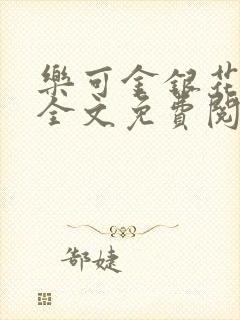 樂可金銀花
全文免費閱
郜婕